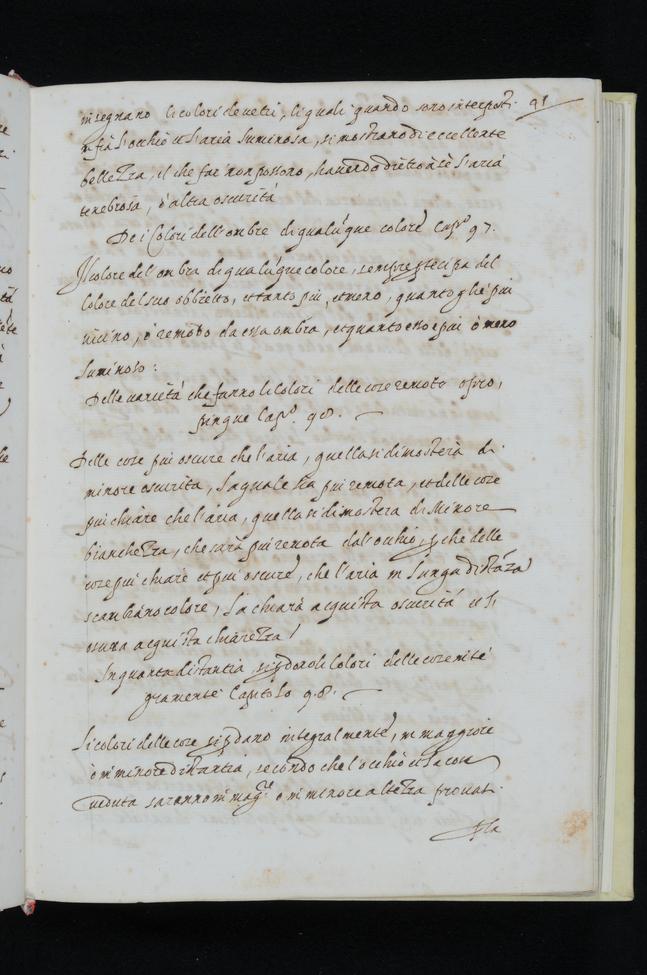 insegnano li colori de vetri, li quali quando sono interposti. 91
infrà l'occhio et l'aria luminosa, si mostrano di eccellente
bellezza, il che far non possono, havendo dietro à sè l'aria
tenebrosa, ò altra oscurità
De i Colori dell'ombre di qualúque colore Cap.º 97.
Il colore del ombra di qualúque colore, sempre ptecipa del
colore del suo obbietto, et tanto piu, et meno, quanto gli è piu
vicino, ò remoto da essa ombra, et quanto esso è piu ò meno
luminoso:
Delle varietà che fanno li colori delle cose remote ò pro,
pinque Cap.º 98.
Delle cose piu oscure che l'aria, quella si dimosterà di
minore oscurità, la quale sia piu remota, et delle cose
piu chiare che l'aria, quella si dimosterà di Minore
bianchezza, che sarà piu remota dal'occhio, che delle
cose piu chiare et piu oscure, che l'aria in lunga distáza
scambiano colore, la chiara acquista oscurità et l'
oscura acquista chiarezza!
In quanta distantia si pdono li Colori delle cose inté
gramente Capitolo 98.
Li colori delle cose si pdano integralmente, in maggiore
ò in minore distantia, secondo che l'occhio et la cosa
veduta saranno in mag.re ò in minore altezza provas.